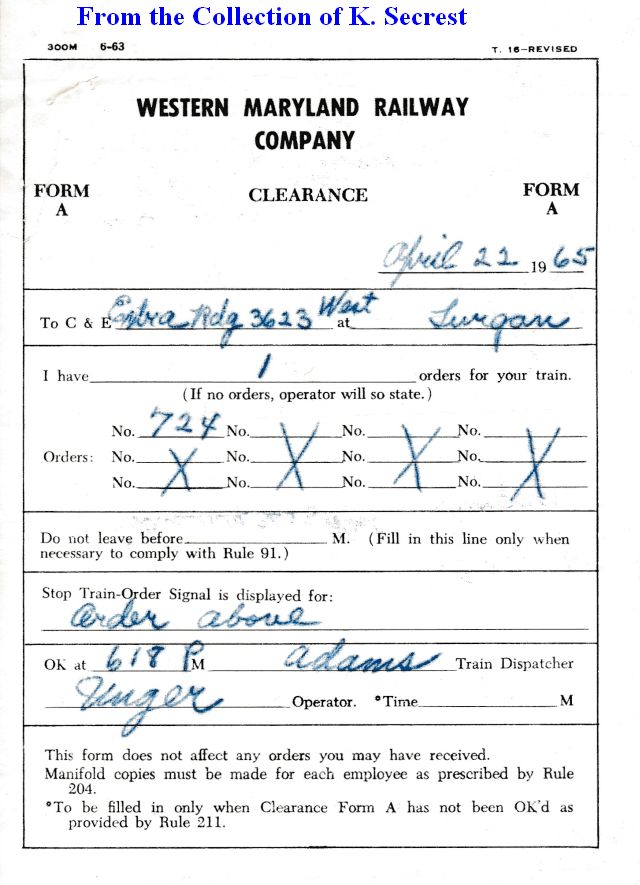 From the Collection of K. Secrest
300M 6-63 T. 16—REVISED
WESTERN MARYLAND RAILWAY
COMPANY
FORM
A
CLEARANCE
FORM
A
April 22 1965
To C & E Extra Rdg 3623 West at Lurgan
I have 1 orders for your train.
(If no orders, operator will so state.)
No. 724 No. X No. X No. X
Orders: No. X No. No. No.
No. No. No. No.
Do not leave before M. (Fill in this line only when
necessary to comply with Rule 91.)
Stop Train-Order Signal is displayed for:
Order above
OK at 618 P M Adams Train Dispatcher
Unger Operator. *Time M
This form does not affect any orders you may have received.
Manifold copies must be made for each employee as prescribed by Rule
204.
*To be filled in only when Clearance Form A has not been OK'd as
provided by Rule 211.